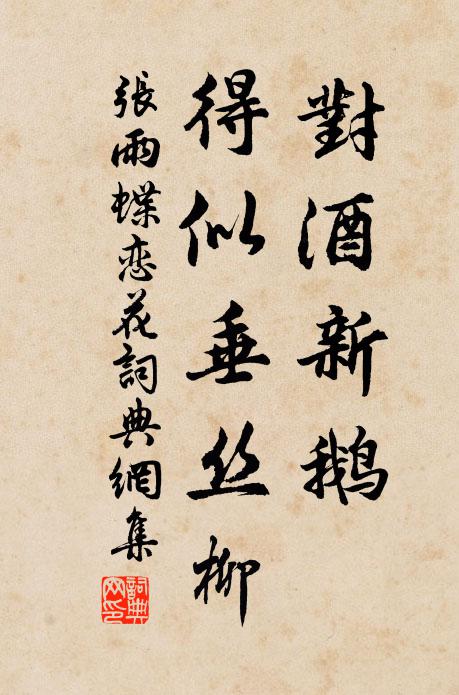 對酒新鵝
得似垂丝柳
張雨蝶恋花詞典網集
詞典
网印